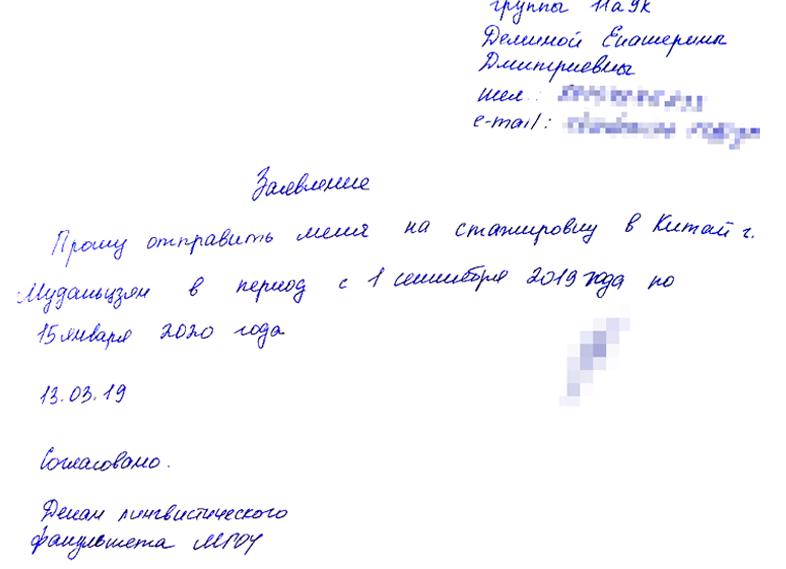 группы 11а9к
Деминой Екатерины
Дмитриевны
тел.:
e-mail:
Заявление
Прошу отправить меня на стажировку в Китай г.
Муданьцзян в период с 1 сентября 2019 года по
15 января 2020 года
13.03.19
Согласовано.
Декан лингвистического
факультета МГОУ